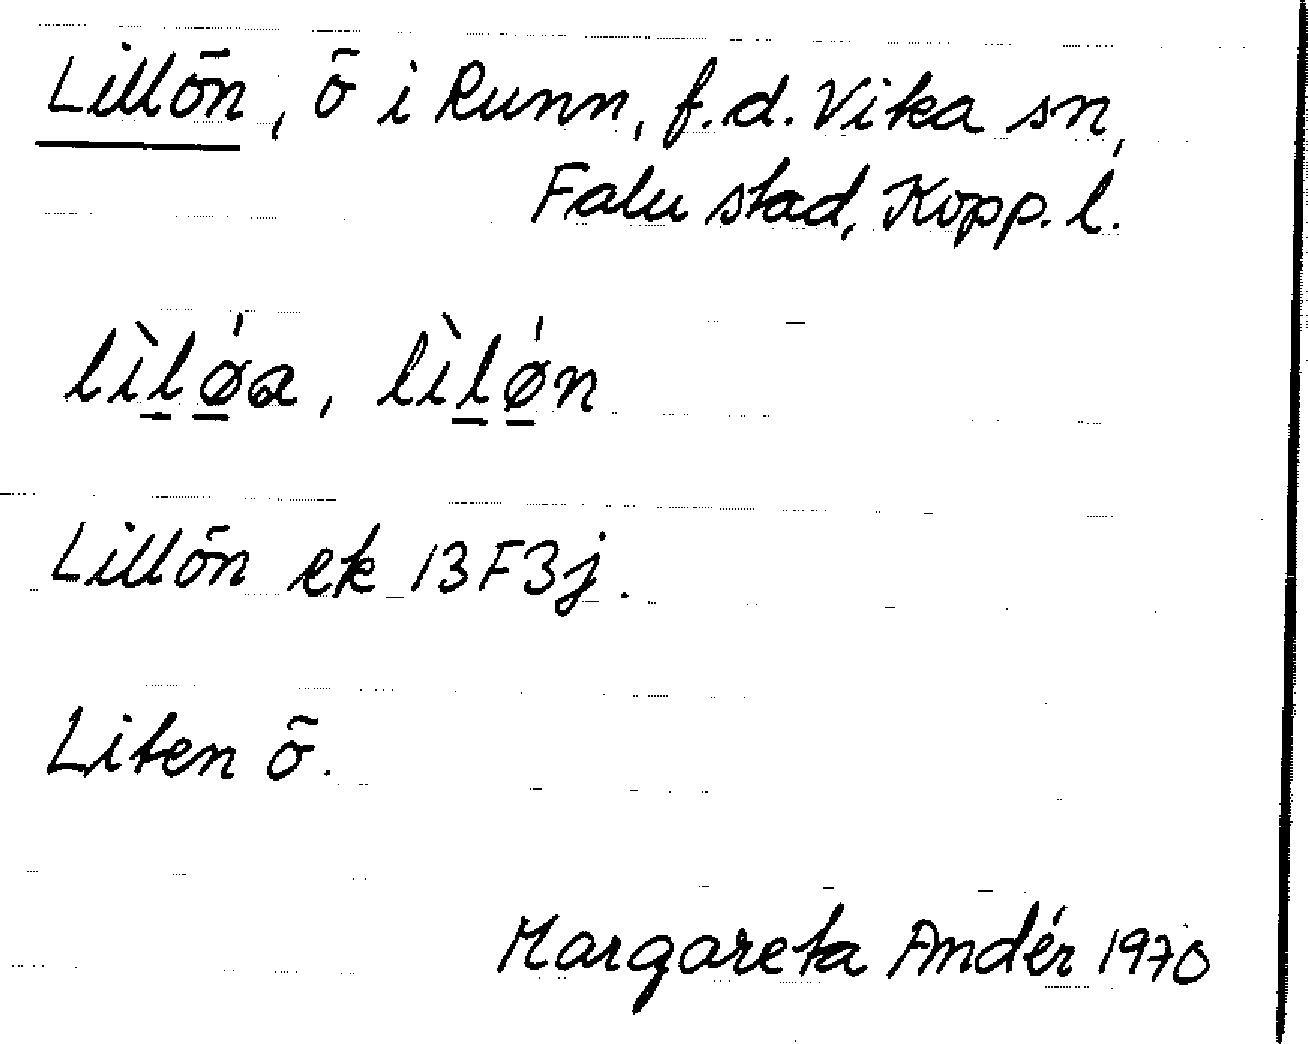 Lillön, ö i Runn, f.d. Vika sn,
Falu stad, Kopp. l.
lìlǿa, lìlǿn
Lillön ek 13F3j.
Liten ö.
Margareta Andér 1970